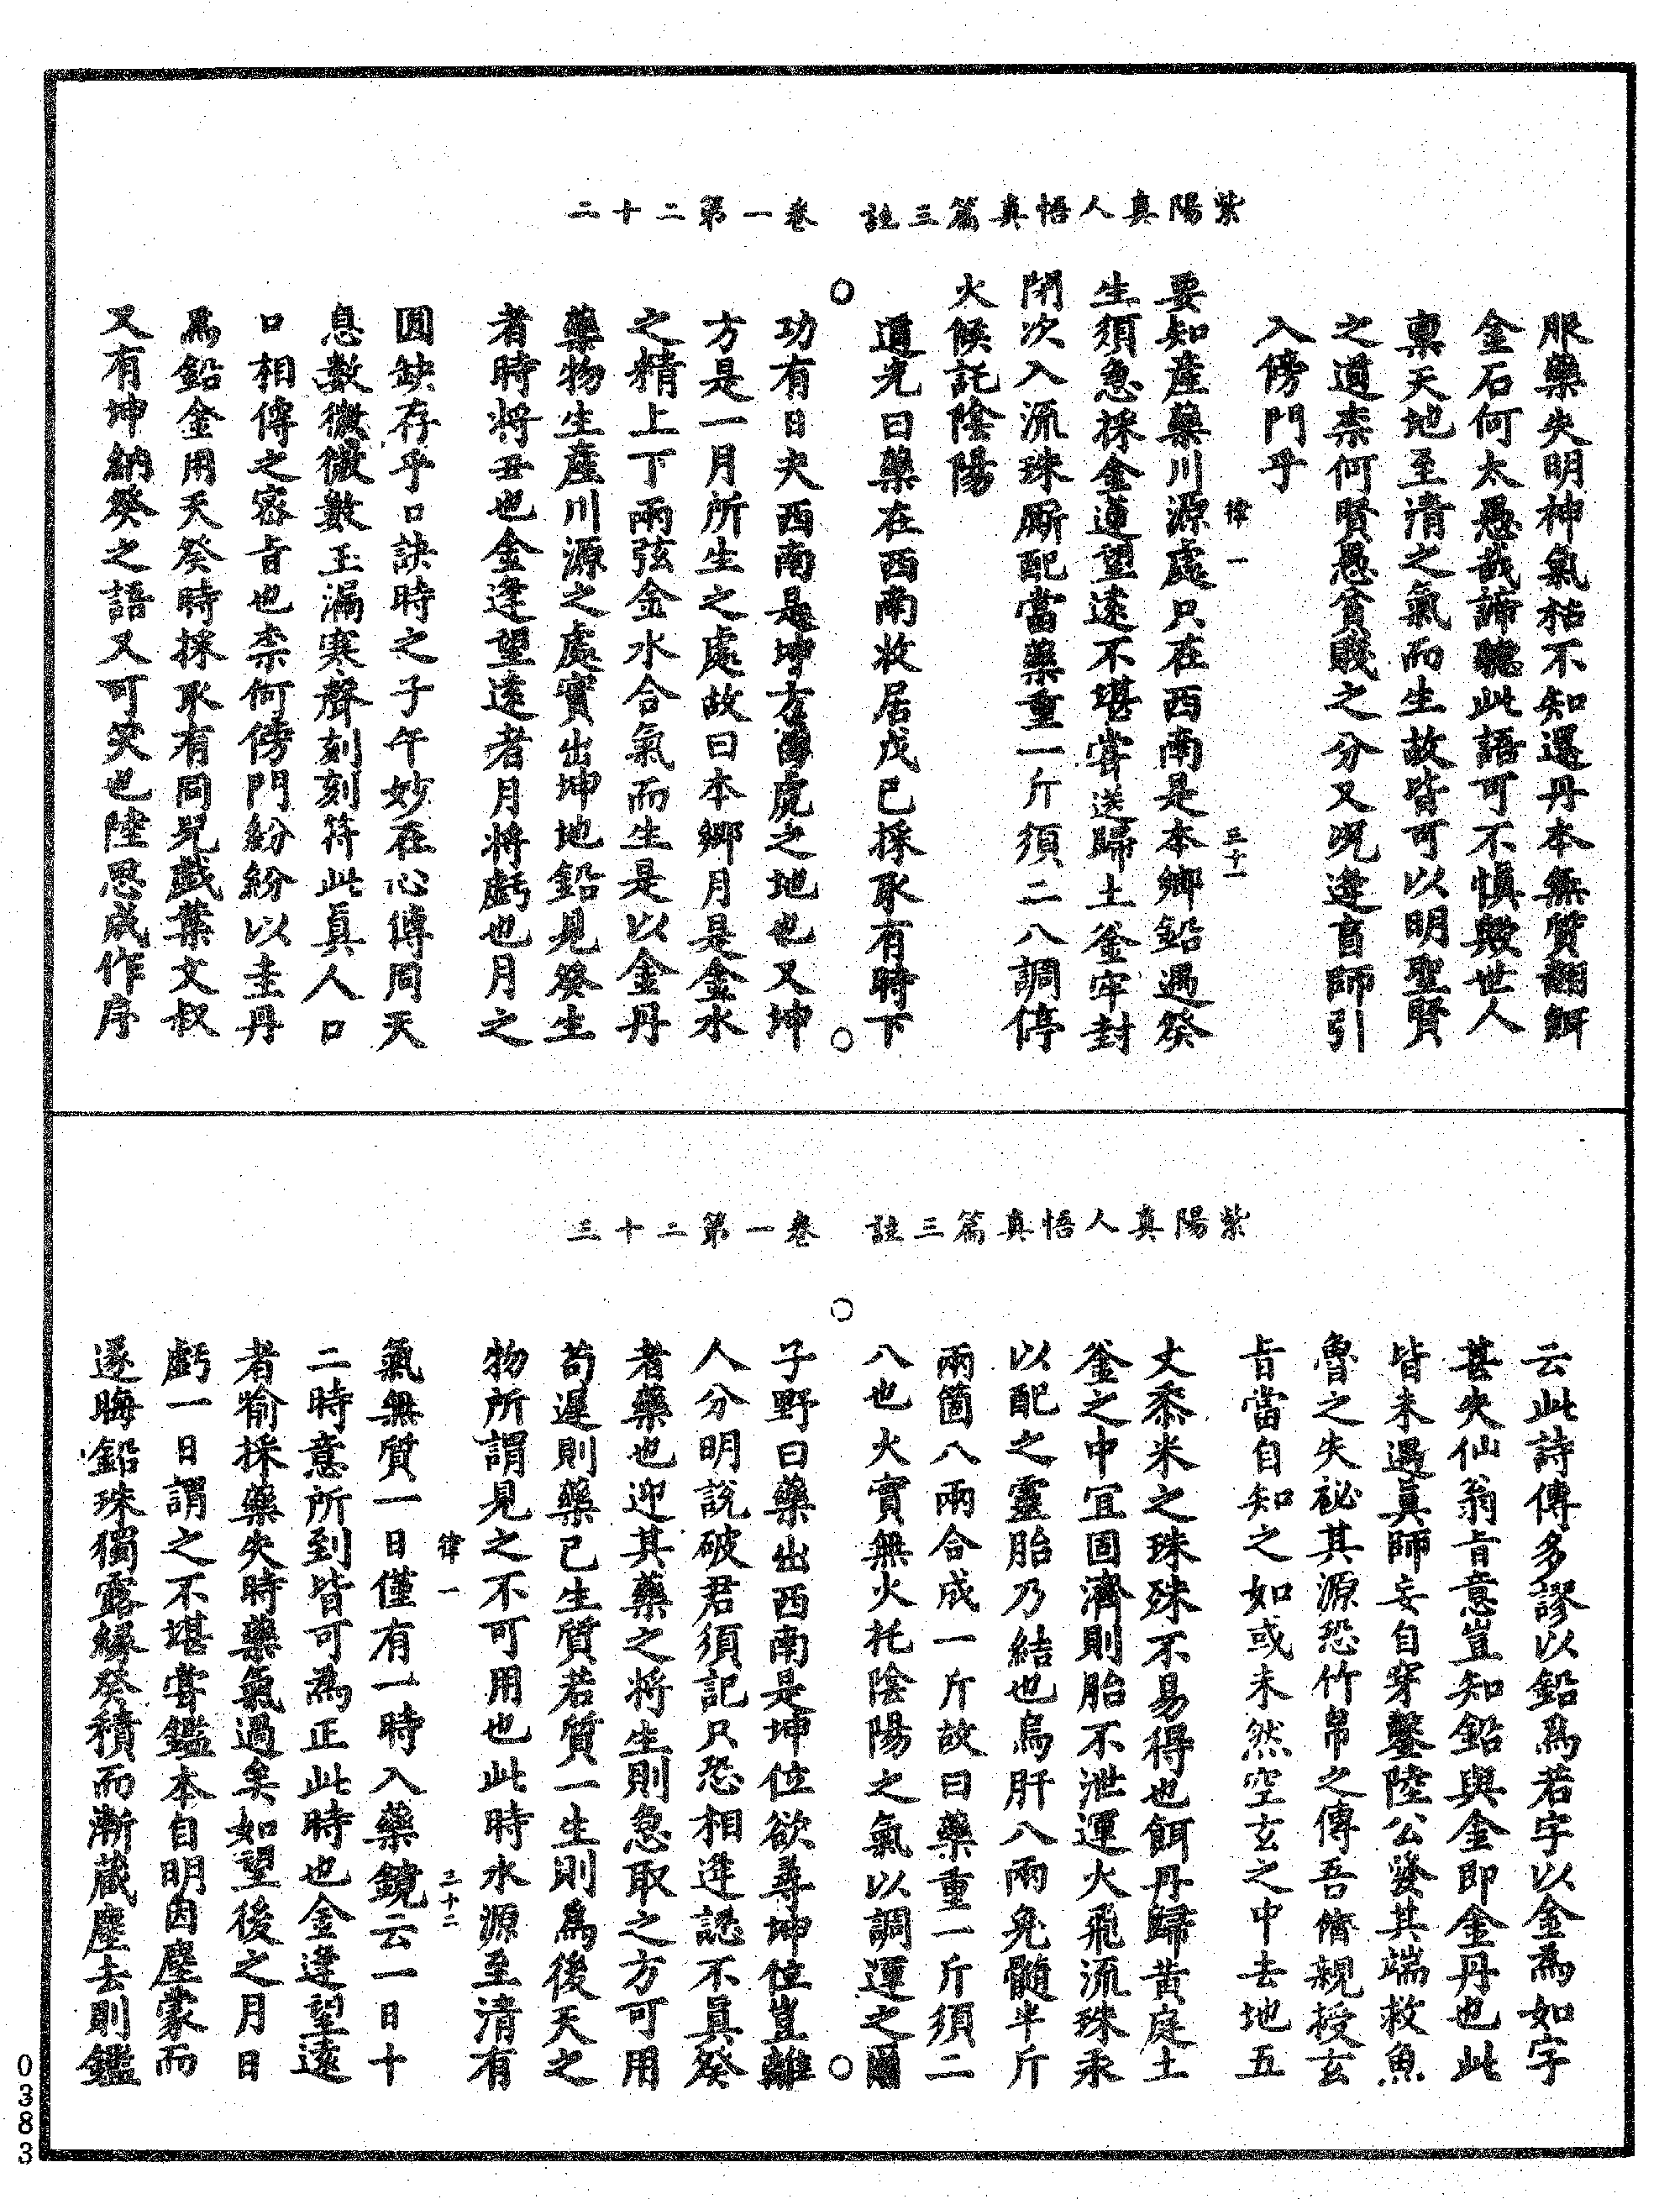 紫陽真人悟真篇三註 卷一第二十二
服藥失明神氣枯不知還丹本無質翻餌
金石何太愚哉諦聽此語可不慎歟世人
稟天地至清之氣而生故皆可以明聖賢
之道柰何賢愚貧賤之分又况逢盲師引
入傍門乎
律一 三十一
要知産藥川源處只在西南是本鄉鉛遇癸
生須急採金逢望遠不堪嘗送歸土釜牢封
閉次入流珠厮配當藥重一斤須二八調停
火候託陰陽
道光曰藥在西南收居戊己採取有時下
功有日夫西南是坤方酒虎之地也又坤
方是一月所生之處故曰本鄉月是金水
之精上下兩弦金水合氣而生是以金丹
藥物生産川源之處實出坤地鉛見癸生
者時將丑也金逢望遠者月將虧也月之
圓缺存乎口訣時之子午妙在心傳同天
息數微微數玉漏寒聲刻刻符此真人口
口相傳之密旨也柰何傍門紛紛以圭丹
為鉛金用天癸時採取有同兒戲葉文叔
又有坤納癸之語又可笑也陸思成作序
紫陽真人悟真篇三註 卷一第二十三
云此詩傳多謬以鉛為若字以金為如字
甚失仙翁旨意豈知鉛與金即金丹也此
皆未遇真師妄自穿鑿陸公發其端救魚
魯之失祕其源恐竹帛之傳吾儕親授玄
旨當自知之如或未然空玄之中去地五
丈黍米之珠殊不易得也餌丹歸黃庭土
釜之中宜固濟則胎不泄運火飛流珠汞
以配之靈胎乃結也烏肝八兩兔髓半斤
兩箇八兩合成一斤故曰藥重一斤須二
八也火實無火托陰陽之氣以調運之爾
子野曰藥出西南是坤位欲尋坤位豈離
人分明說破君須記只恐相逢認不真癸
者藥也迎其藥之將生則急取之方可用
苟遲則藥已生質若質一生則為後天之
物所謂見之不可用也此時水源至清有
律一 三十二
氣無質一日僅有一時入藥鏡云一日十
二時意所到皆可為正此時也金逢望遠
者喻採藥失時藥氣過矣如望後之月日
虧一日謂之不堪嘗鑑本自明因塵蒙而
遂晦鉛珠獨露緣癸積而漸藏塵去則鑑
0383